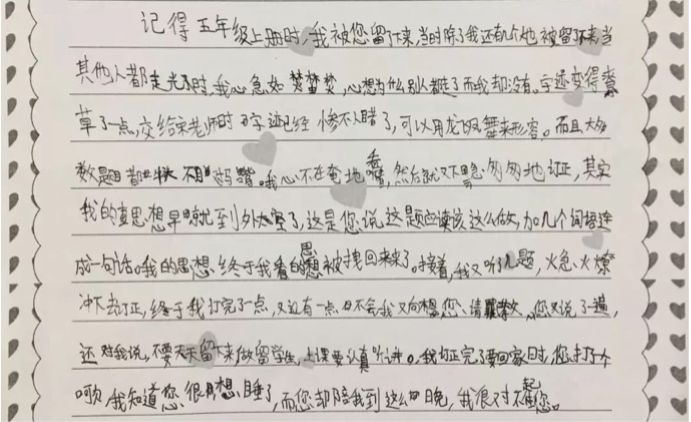 记得五年级上册时,我被您留下来,当时除了我还有几个也被留下来,当
其他人都走光了时,我心急如焚,心想为什么别人都走了而我却没有。字迹变得潦
草了一点,交给宋老师时字迹已经惨不人睹了,可以用龙飞凤舞来形容。而且大多
数题目都。我心不在焉地看,然后就又匆匆地订正,其实
我的思想早就到外太空了,这是您说这题应该这么做,加几个词语连
成一句话。我的思想终于被拽回来了。接着,我又听了几题,火急火燎
冲下去订正,终于我订完了一点,又还有一点不会,我又向您请教,您又说了一遍,
还对我说,不要天天留下来做留学生,上课要认真听讲。我订正完了要回家时,您打了个
哈欠,我知道您很想睡了,而您却陪我到这么晚,我很对不起您。